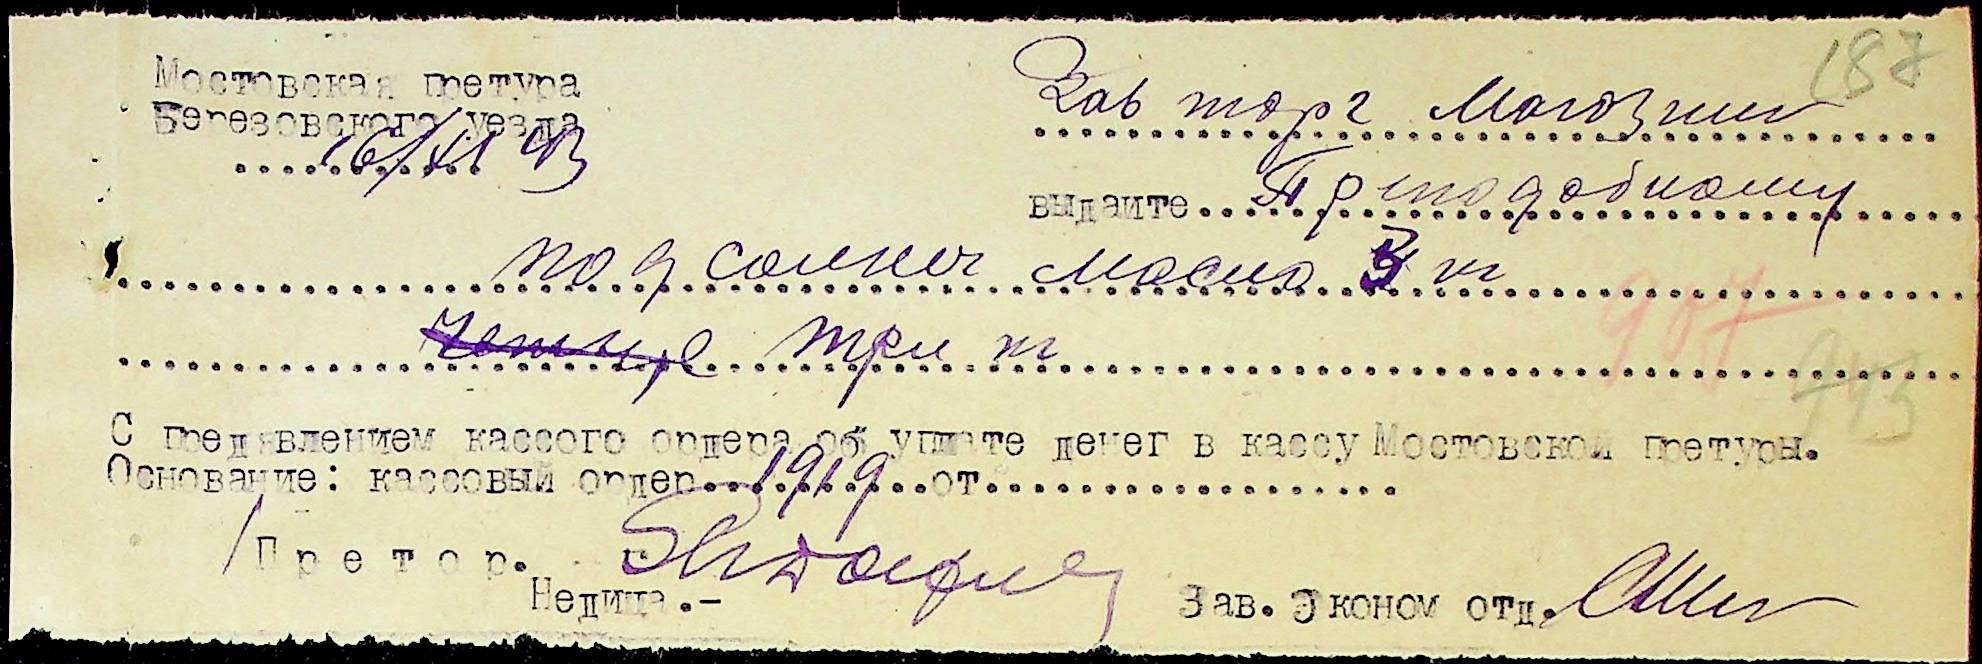 187
Мостовская претура
Зав торг Магазин
Березовского уезда
16/XI 43
выдаите Преподобному
подсолнеч масла 3 кг
907
четыре три кг
943
С предявлением кассого ордера об уплате денег в кассу Мостовской претуры.
Основание: кассовый ордер 1919 от
Претор.
Недица.-
Зав. Эконом отд.